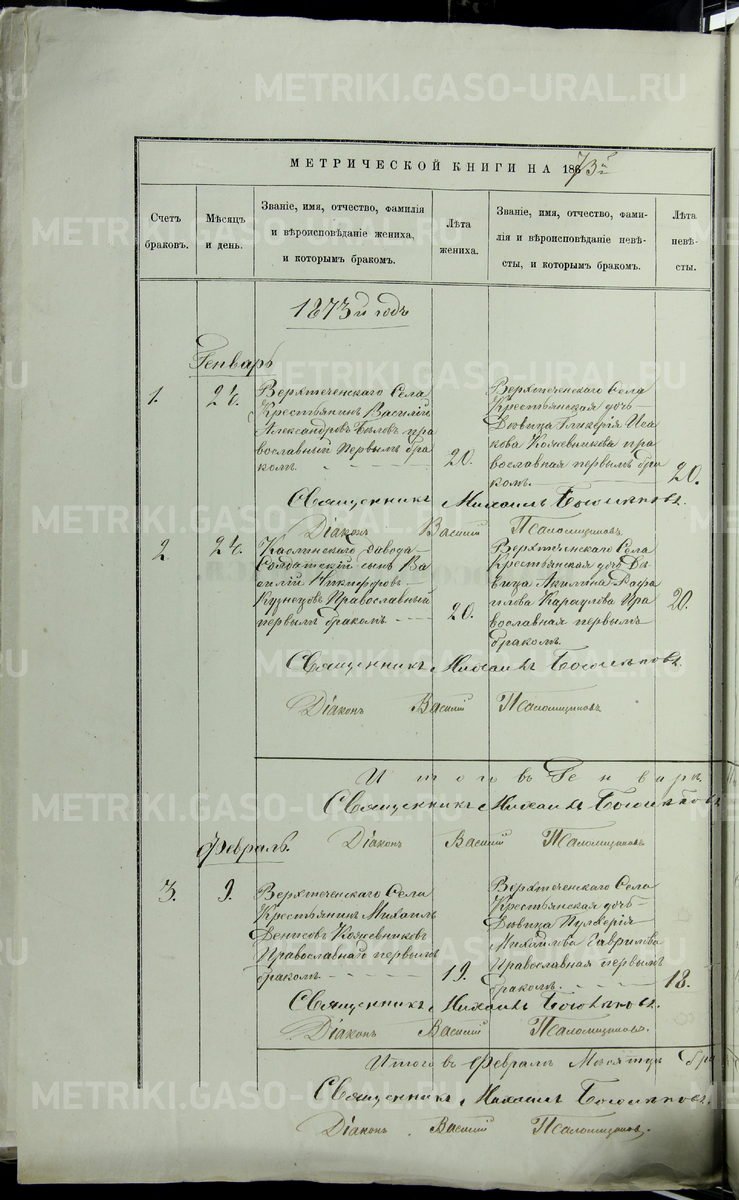 METRIKI.GASO-URAL.RU
МЕТРИЧЕСКОЙ КНИГИ НА 1873й
Счетъ браковъ.
Мѣсяцъ и день.
Званіе, имя, отчество, фамилія
и вѣроисповѣданіе жениха,
и которымъ бракомъ.
Лѣта жениха.
Званіе, имя, отчество, фами-
лія и вѣроисповѣданіе невѣ-
сты, и которымъ бракомъ.
Лѣта невѣ-
сты.
1873й годъ
Генварь
1.
24.
Верхтеченскаго Села
Крестьянинъ Василій
Александровъ Бѣловъ пра
вославный Первымъ бра
комъ.
20.
Верхтеченскаго Села
Крестьянская дочь
Дѣвица Гликерія Иса
кова Кожевникова пра
вославная первымъ бра
комъ.
20.
Священникъ Михаилъ
Діаконъ Василій Псаломщиковъ
2
24.
Каслинскаго Завода
Солдатскій сынъ Ва
силій Никифоровъ
Кузнецовъ Православный
первымъ бракомъ
20.
Верхтеченскаго Села
Крестьянская дочь Дѣ
вица Акилина Рафа
илова Караулова Пра
вославная первымъ
бракомъ.
20.
Священникъ Михаилъ
Діаконъ Василій Псаломщиковъ
Итого въ Генваре
Священникъ Михаилъ
Діаконъ Василій Псаломщиковъ
Февраль.
3.
9.
Верхтеченскаго Села
Крестьянинъ Михаилъ
Денисовъ Кожевниковъ
Православнаго первымъ
бракомъ.
19.
Верхтеченскаго Села
Крестьянская дочь
Дѣвица Пулхерія
Михайлова Гаврилова
Православная первымъ
бракомъ.
18.
Священникъ Михаилъ
Діаконъ Василій Псаломщиковъ.
Итого въ Февралѣ Месяцѣ бра
Священникъ Михаилъ
Діаконъ Василій Псаломщиковъ.